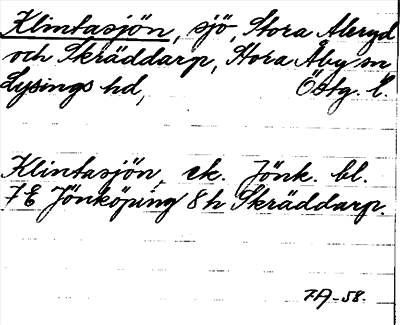 Klintasjön, sjö, Stora Åleryd
och Skräddarp, Stora Åby sn
Lysings hd, Östg. l.
Klintasjön, ek. Jönk. bl.
7 E Jönköping 8 h Skräddarp.
7A-58.